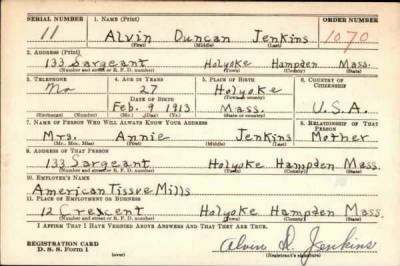 SERIAL NUMBER 1. NAME (Print) ORDER NUMBER
11 Alvin Duncan Jenkins 1070
(First) (Middle) (Last)
2. ADDRESS (Print)
133 Sargeant Holyoke Hampden Mass.
(Number and street or R. F. D. number) (Town) (County) (State)
3. TELEPHONE 4. AGE IN YEARS 5. PLACE OF BIRTH 6. COUNTRY OF CITIZENSHIP
No 27 Holyoke
DATE OF BIRTH (Town or county)
Feb. 9 1913 Mass. U.S.A.
(Mo.) (Day) (Yr.) (State or country)
7. NAME OF PERSON WHO WILL ALWAYS KNOW YOUR ADDRESS 8. RELATIONSHIP OF THAT PERSON
Mrs. Annie Jenkins Mother
(Mr., Mrs., Miss) (First) (Middle) (Last)
9. ADDRESS OF THAT PERSON
133 Sargeant Holyoke Hampden Mass.
(Number and street or R. F. D. number) (Town) (County) (State)
10. EMPLOYER'S NAME
American Tissue Mills
11. PLACE OF EMPLOYMENT OR BUSINESS
12 Crescent Holyoke Hampden Mass.
(Number and street or R. F. D. number) (Town) (County) (State)
I AFFIRM THAT I HAVE VERIFIED ABOVE ANSWERS AND THAT THEY ARE TRUE.
REGISTRATION CARD
D. S. S. Form 1 (over) Alvin D. Jenkins
(Registrant's signature)